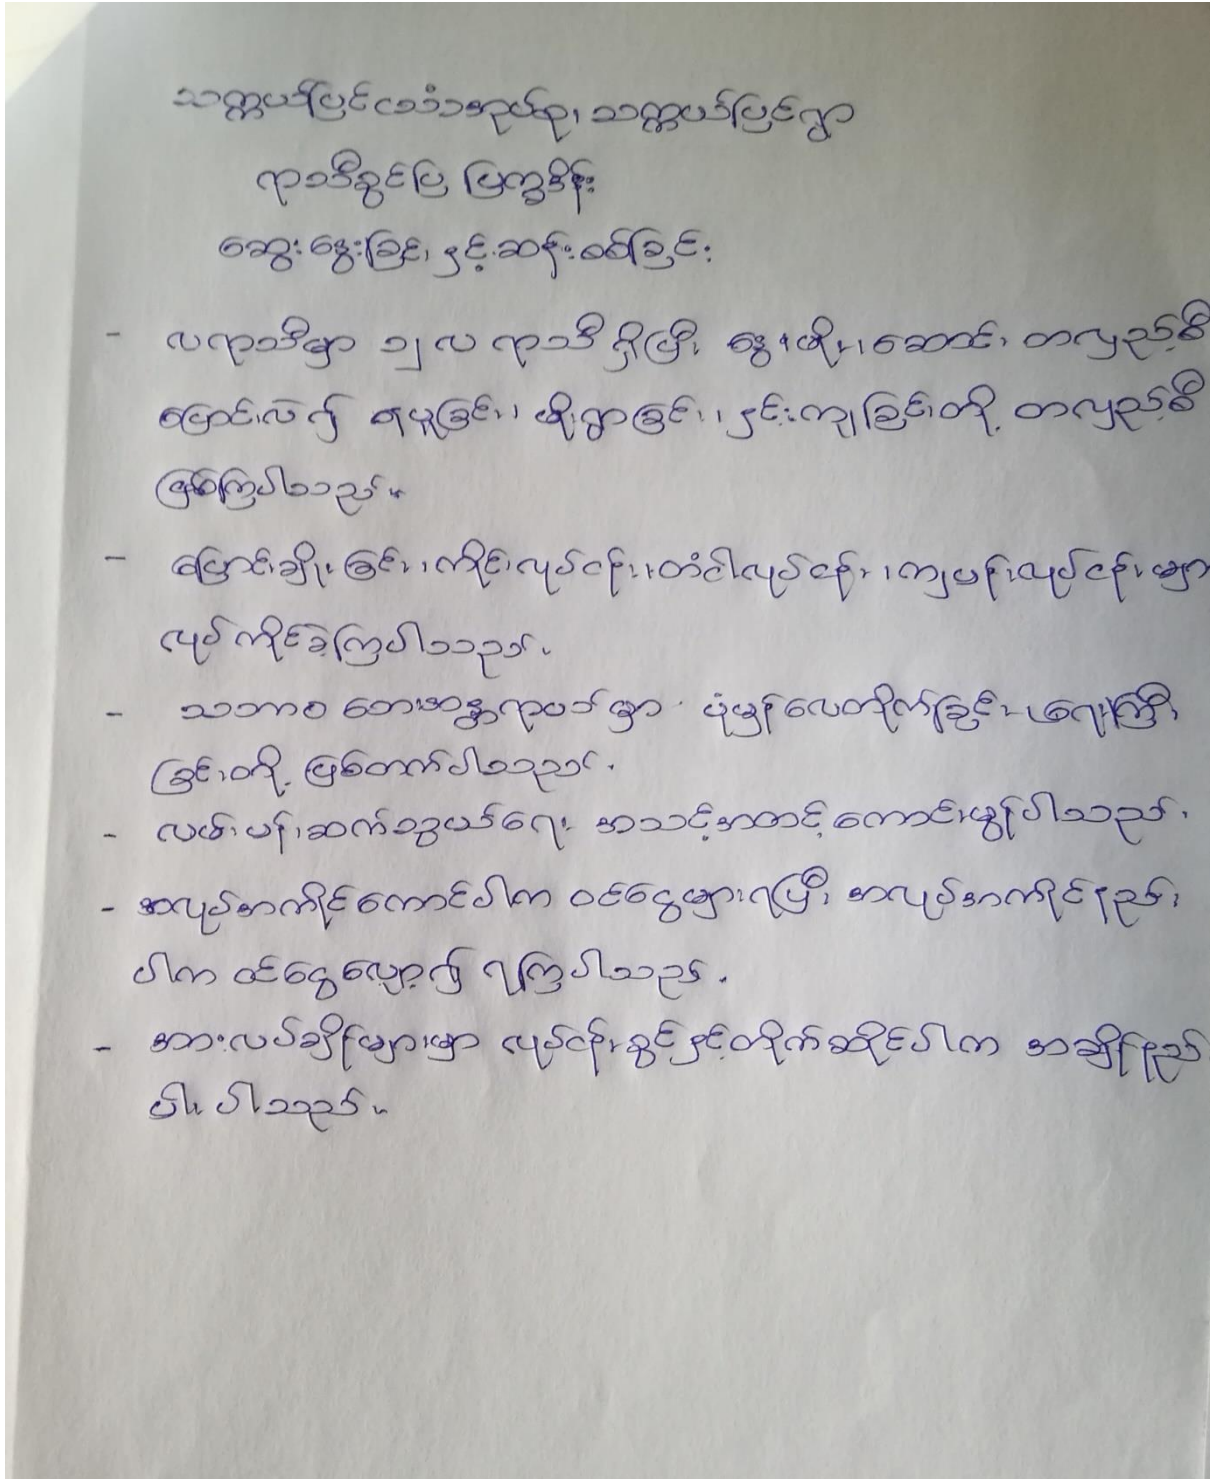 သက္ကယ်ပြင်ဒေသံအုပ်စု၊ သက္ကယ်ပြင်ရွာ
ရာသီခွင်ပြ ပြက္ခဒိန်း
ဆွေးနွေးခြင်း၊ နှင့် ဆန်းစစ်ခြင်း
- လရာသီမှာ ၁၂ လ ရာသီ ရှိပြီး နွေ၊ မိုး၊ ဆောင်း တလှည့်စီ
ပြောင်းလဲ၍ ရယူခြင်း၊ မိုးရွာခြင်း၊ နှင်းကျခြင်းတို့ တလှည့်စီ
ဖြစ်ကြပါသည်။
- ပြောင်းချိုးခြင်း၊ ကိုင်းလုပ်ငန်း၊ တံငါလုပ်ငန်း၊ ကျပန်းလုပ်ငန်းများ
လုပ်ကိုင်ခဲ့ကြပါသည်။
- သဘာဝ ဘေးအန္တရာယ်မှာ ပုံမှန်လေတိုက်ခြင်း၊ ရေကြီး
ခြင်းတို့ ဖြစ်တတ်ပါသည်။
- လမ်းပန်းဆက်သွယ်ရေး အသင့်အတင့်ကောင်းမွန်ပါသည်။
- အလုပ်အကိုင်ကောင်ပါက ဝင်ငွေများရပြီး အလုပ်အကိုင်နည်း
ပါက ဝင်ငွေလျော့၍ ရကြပါသည်။
- အားလပ်ချိန်များမှာ လုပ်ငန်းခွင်နှင့်တိုက်ဆိုင်ပါက အချိန်နည်
ပါးပါသည်။